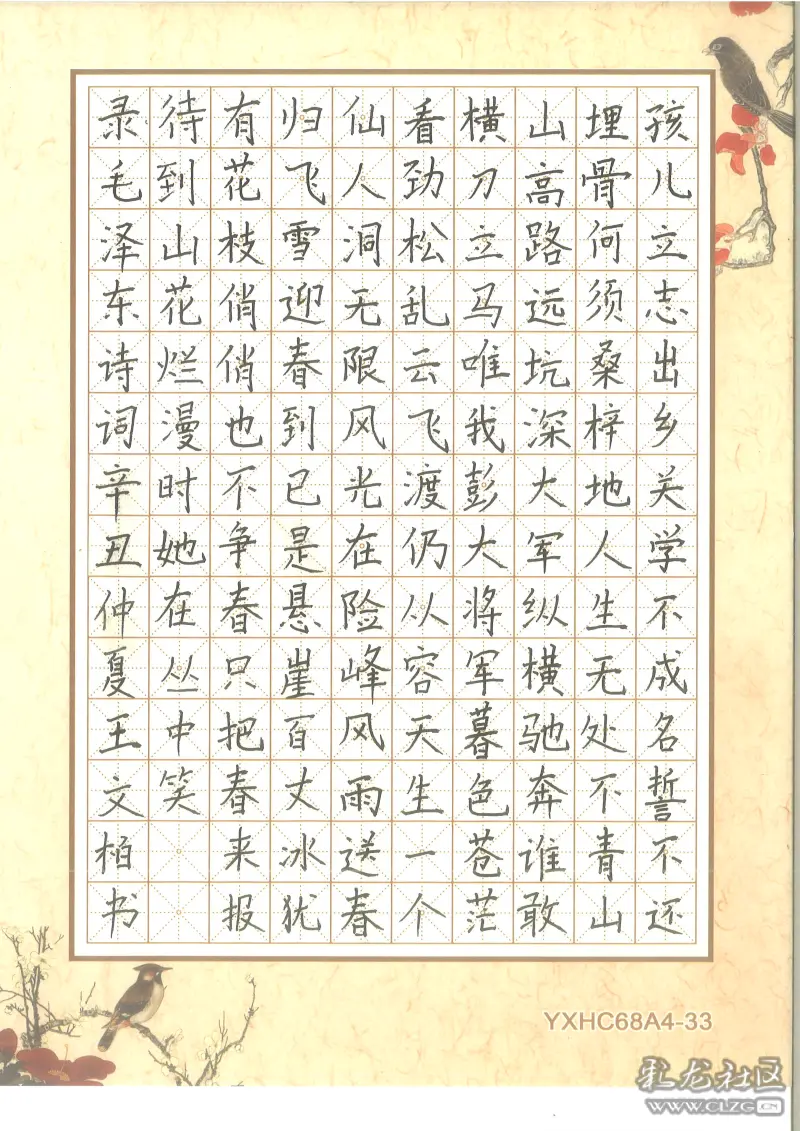 孩儿立志出乡关学不成名誓不还
埋骨何须桑梓地人生无处不青山
山高路远坑深大军纵横驰奔谁敢
横刀立马唯我彭大将军暮色苍茫
看劲松乱云飞渡仍从容天生一个
仙人洞无限风光在险峰风雨送春
归飞雪迎春到已是悬崖百丈冰犹
有花枝俏俏也不争春只把春来报
待到山花烂漫时她在丛中笑
录毛泽东诗词辛丑仲夏王文柏书
YXHC68A4-33
彩龙社区
www.CLZG.CN